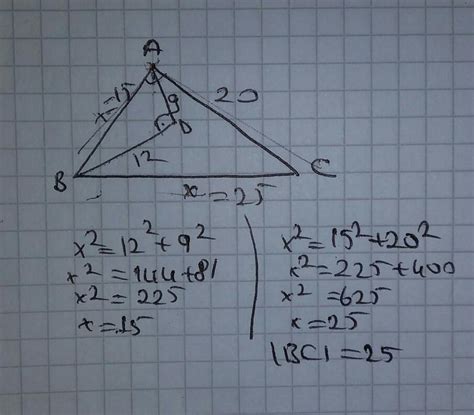 A
x=15
9
20
D
12
B
C
x=25
x²=12²+9²
x²=144+81
x²=225
x=15
x²=15²+20²
x²=225+400
x²=625
x=25
|BC|=25